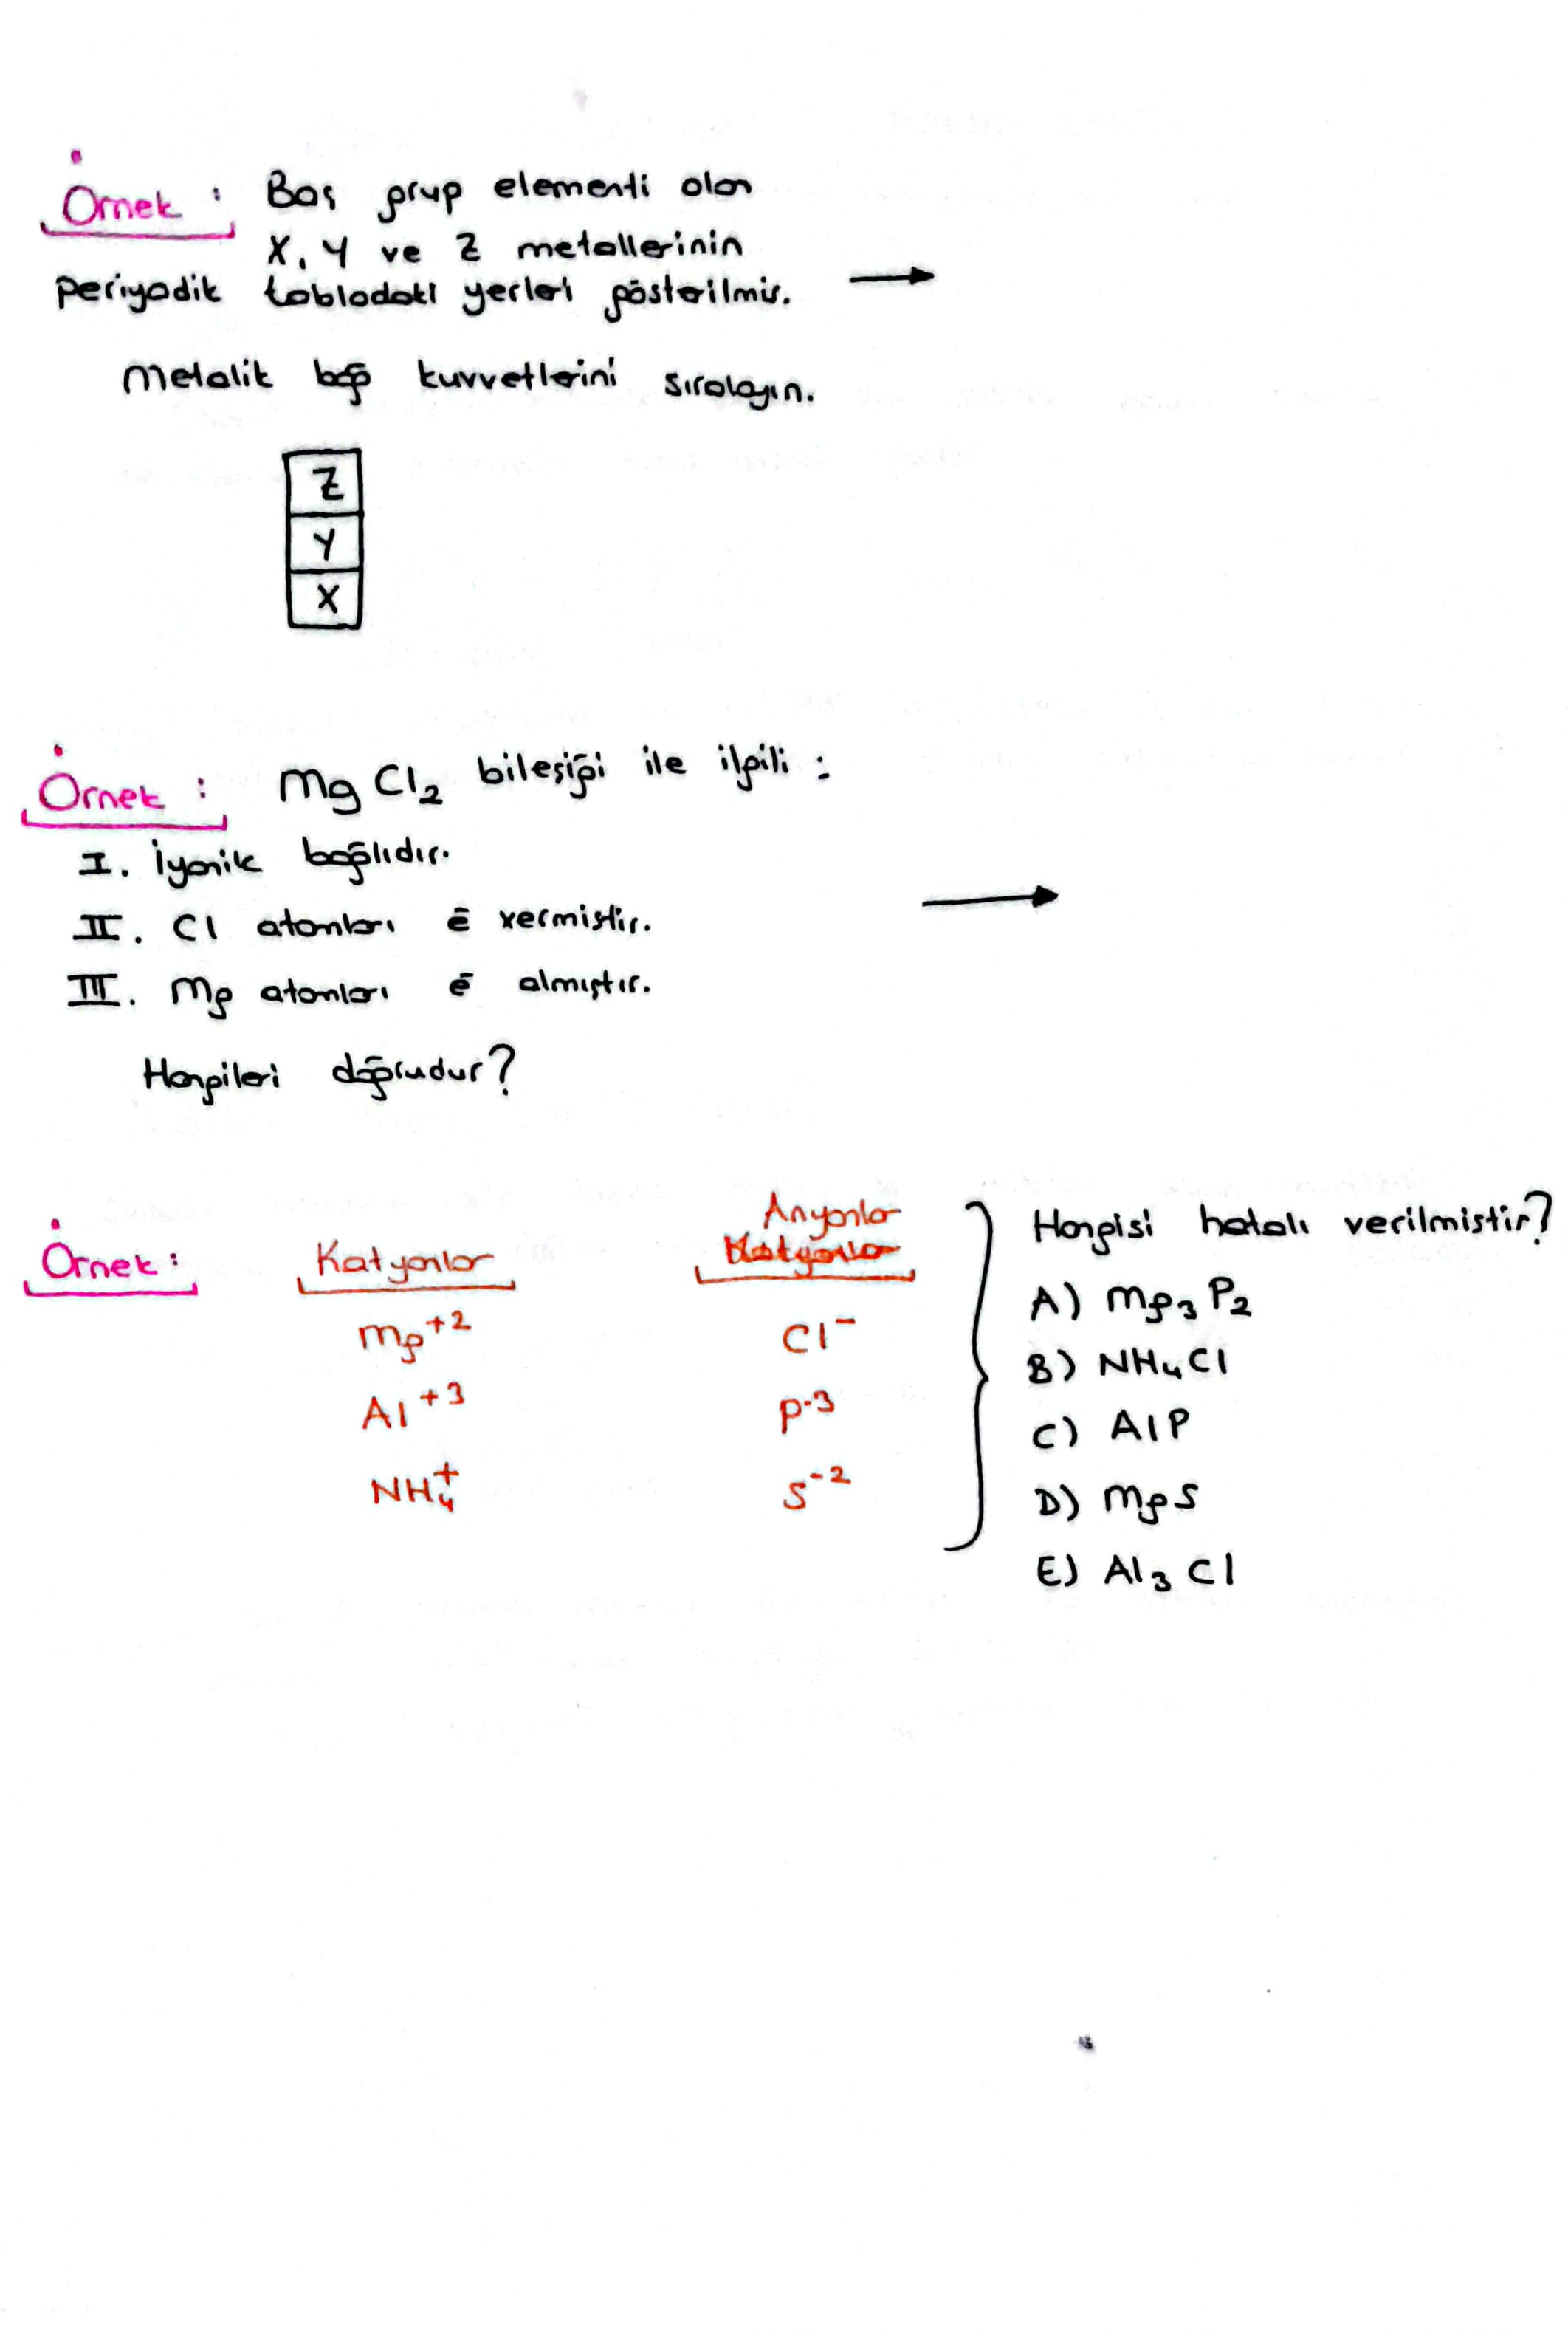 Örnek : Baş grup elementi olan
X, Y ve Z metallerinin
periyodik tablodaki yerleri gösterilmiş. →
Metalik bağ kuvvetlerini sıralayın.
Z
Y
X
Örnek : MgCl₂ bileşiği ile ilgili :
I. İyonik bağlıdır.
II. Cl atomları ē vermiştir. →
III. Mg atomları ē almıştır.
Hangileri doğrudur?
Örnek : Katyonlar Anyonlar
Katyonlar
Mg⁺² Cl⁻
Al⁺³ P⁻³
NH₄⁺ S⁻²
Hangisi hatalı verilmiştir?
A) Mg₃P₂
B) NH₄Cl
C) AlP
D) MgS
E) Al₃Cl